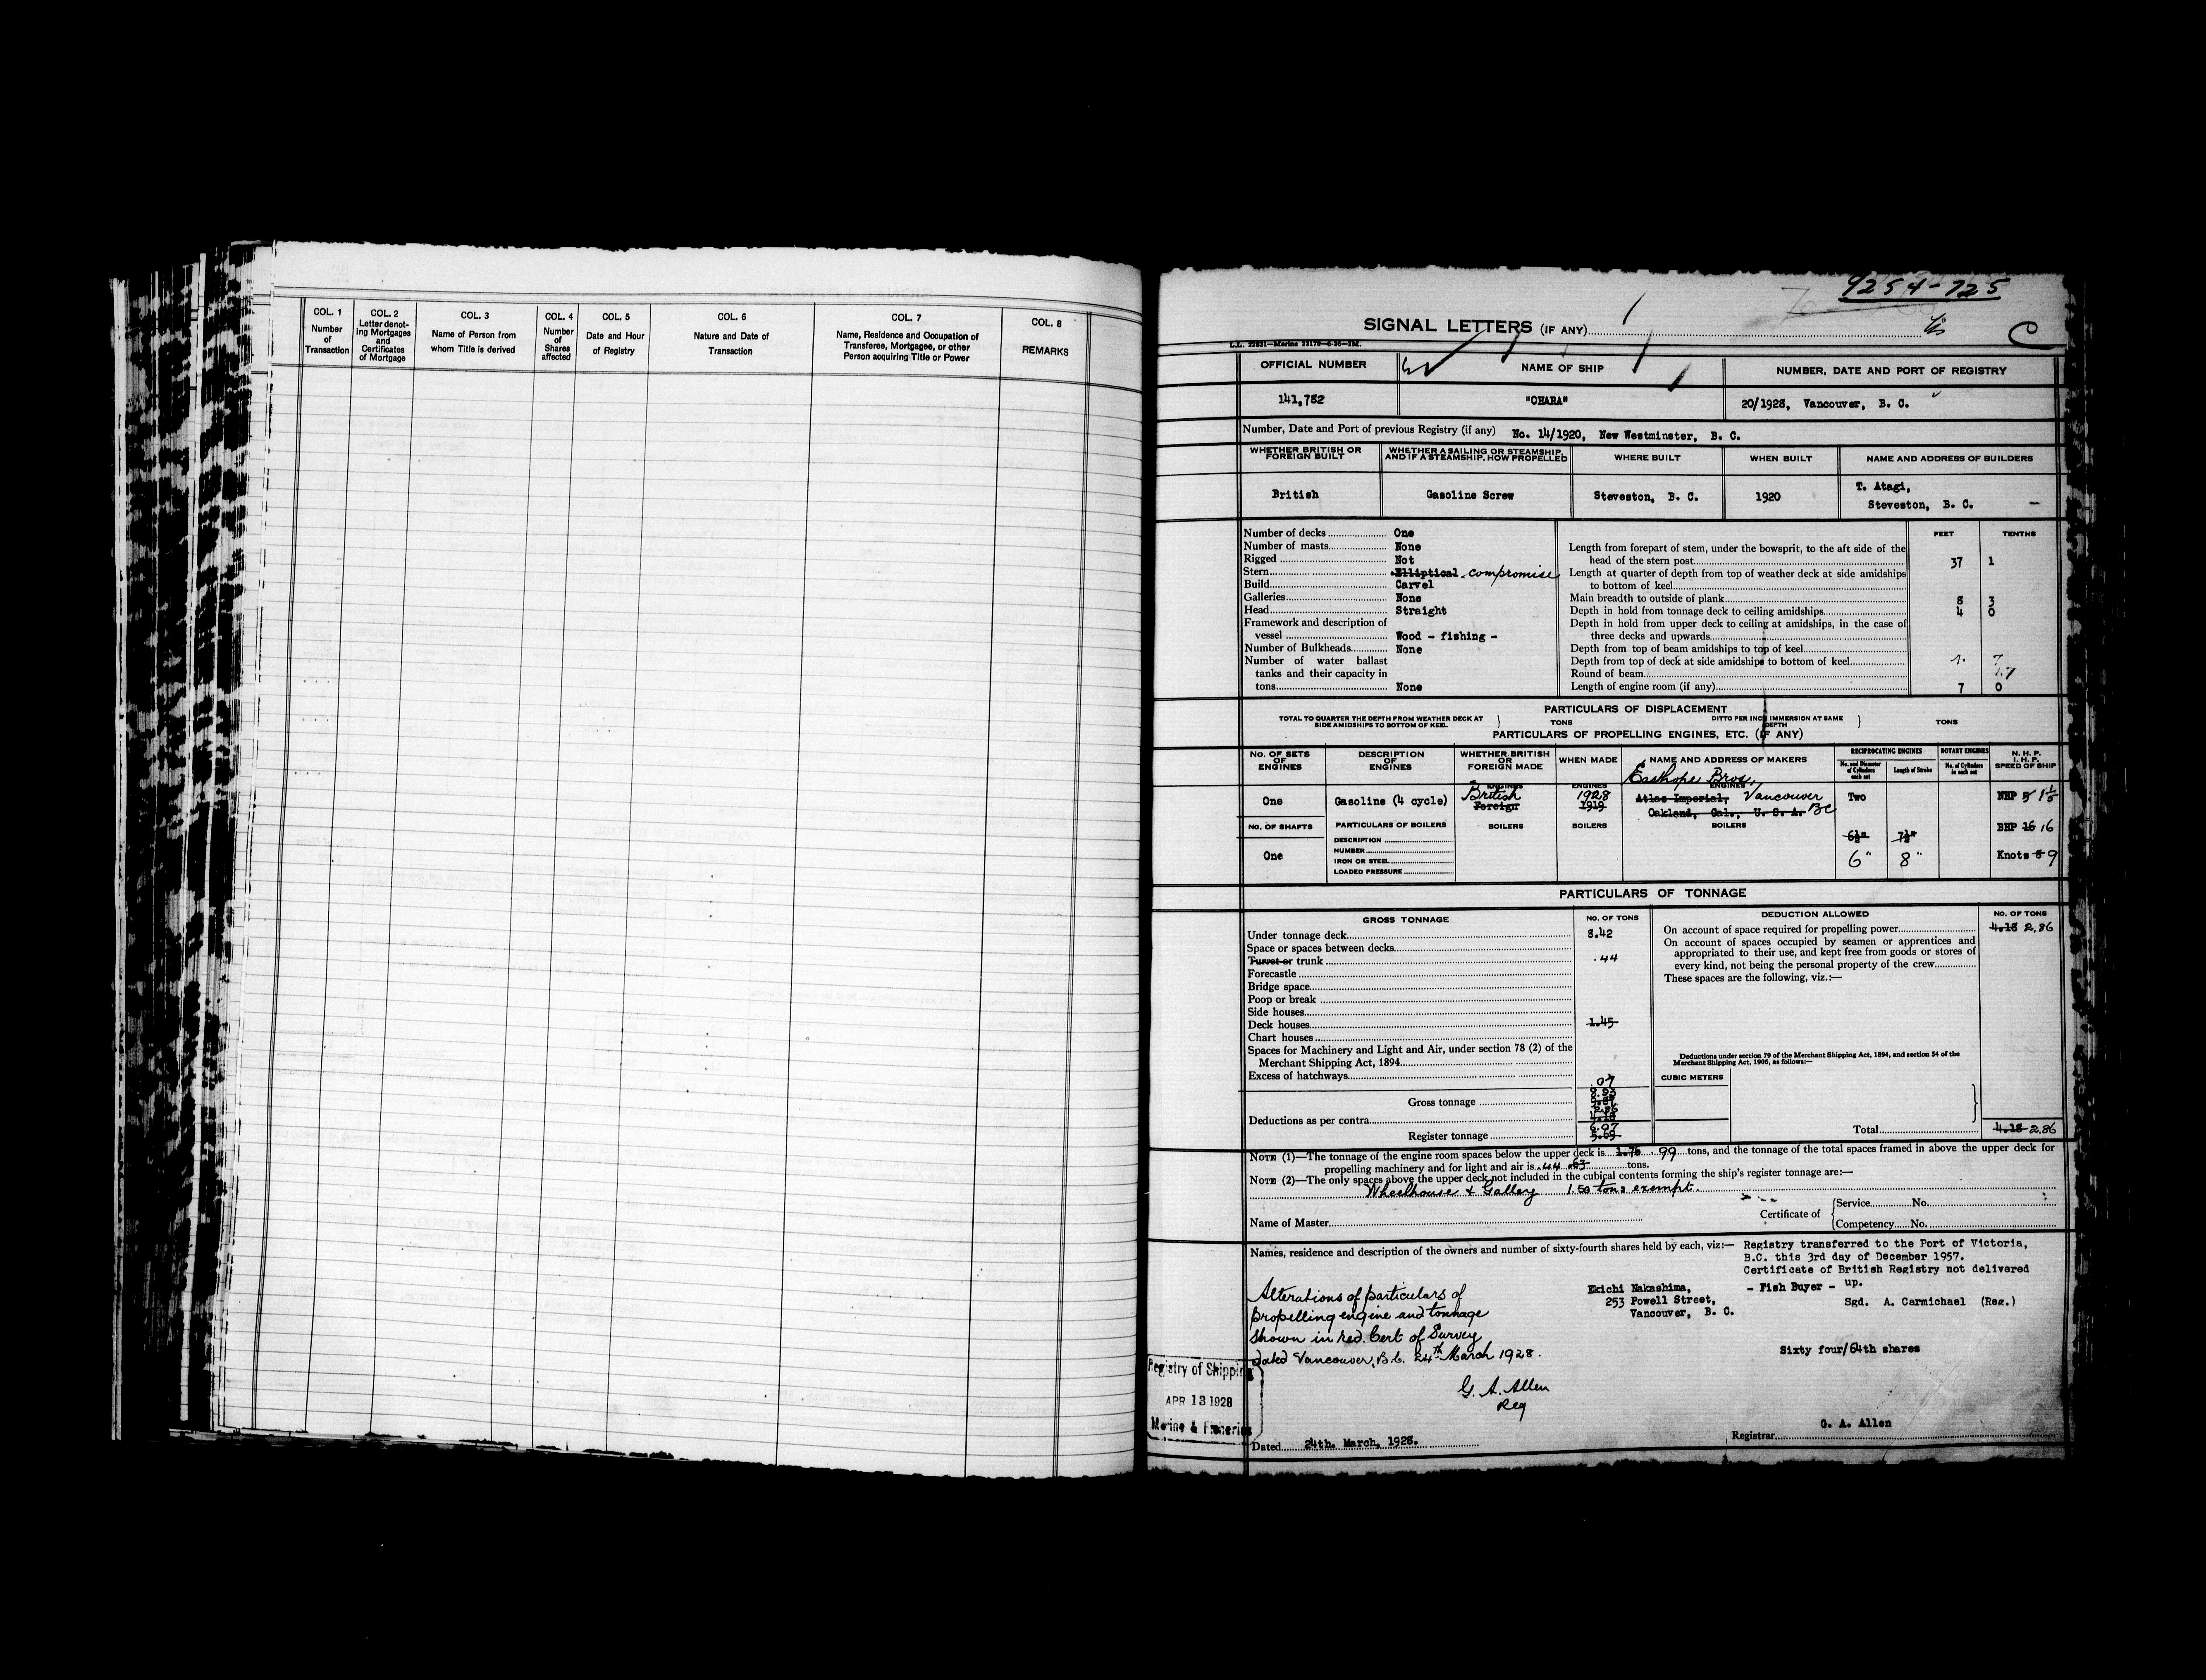 COL. 1
Number
of
Transaction
COL. 2
Letter denot-
ing Mortgages
and
Certificates
of Mortgage
COL. 3
Name of Person from
whom Title is derived
COL. 4
Number
of
Shares
affected
COL. 5
Date and Hour
of Registry
COL. 6
Nature and Date of
Transaction
COL. 7
Name, Residence and Occupation of
Transferee, Mortgagee, or other
Person acquiring Title or Power
COL. 8
REMARKS
9254-725
SIGNAL LETTERS (IF ANY)
C
L.L. 22831—Marine 22170—6-26—2M.
OFFICIAL NUMBER
NAME OF SHIP
NUMBER, DATE AND PORT OF REGISTRY
141,782
"OHARA"
20/1928, Vancouver, B. C.
Number, Date and Port of previous Registry (if any) No. 14/1920, New Westminster, B. C.
WHETHER BRITISH OR
FOREIGN BUILT
WHETHER A SAILING OR STEAMSHIP,
AND IF A STEAMSHIP, HOW PROPELLED
WHERE BUILT
WHEN BUILT
NAME AND ADDRESS OF BUILDERS
British
Gasoline Screw
Steveston, B. C.
1920
T. Atagi,
Steveston, B. C.
Number of decks One
Number of masts None
Rigged Not
Stern Elliptical compromise
Build Carvel
Galleries None
Head Straight
Framework and description of
vessel Wood - fishing -
Number of Bulkheads None
Number of water ballast
tanks and their capacity in
tons None
FEET TENTHS
Length from forepart of stem, under the bowsprit, to the aft side of the
head of the stern post 37 1
Length at quarter of depth from top of weather deck at side amidships
to bottom of keel
Main breadth to outside of plank 8 3
Depth in hold from tonnage deck to ceiling amidships 4 0
Depth in hold from upper deck to ceiling at amidships, in the case of
three decks and upwards
Depth from top of beam amidships to top of keel
Depth from top of deck at side amidships to bottom of keel
Round of beam
Length of engine room (if any) 7 0
PARTICULARS OF DISPLACEMENT
TOTAL TO QUARTER THE DEPTH FROM WEATHER DECK AT
SIDE AMIDSHIPS TO BOTTOM OF KEEL
TONS
DITTO PER INCH IMMERSION AT SAME
DEPTH
TONS
PARTICULARS OF PROPELLING ENGINES, ETC. (IF ANY)
NO. OF SETS
OF
ENGINES
DESCRIPTION
OF
ENGINES
WHETHER BRITISH
OR
FOREIGN MADE
WHEN MADE
NAME AND ADDRESS OF MAKERS
RECIPROCATING ENGINES
No. and Diameter
of Cylinders
each set
Length of Stroke
ROTARY ENGINES
No. of Cylinders
in each set
N. H. P.
I. H. P.
SPEED OF SHIP
One
Gasoline (4 cycle)
ENGINES
British
Foreign
ENGINES
1928
1919
Easthope Bros.
ENGINES
Atlas Imperial, Vancouver
Oakland, Cal., U. S. A. BC
Two
NHP 5 1 1/5
NO. OF SHAFTS
PARTICULARS OF BOILERS
BOILERS
BOILERS
BOILERS
BHP 16 16
One
DESCRIPTION
NUMBER
IRON OR STEEL
LOADED PRESSURE
6½" 7½"
6" 8"
Knots 8 9
PARTICULARS OF TONNAGE
GROSS TONNAGE
NO. OF TONS
Under tonnage deck 8.42
Space or spaces between decks
Turret or trunk .44
Forecastle
Bridge space
Poop or break
Side houses
Deck houses 1.45
Chart houses
Spaces for Machinery and Light and Air, under section 78 (2) of the
Merchant Shipping Act, 1894
Excess of hatchways .07
Gross tonnage 8.93
Deductions as per contra 2.86
4.18
Register tonnage 6.07
5.69
DEDUCTION ALLOWED
NO. OF TONS
On account of space required for propelling power 4.18 2.86
On account of spaces occupied by seamen or apprentices and
appropriated to their use, and kept free from goods or stores of
every kind, not being the personal property of the crew
These spaces are the following, viz.:—
Deductions under section 79 of the Merchant Shipping Act, 1894, and section 54 of the
Merchant Shipping Act, 1906, as follows:—
CUBIC METERS
Total 4.18 2.86
NOTE (1)—The tonnage of the engine room spaces below the upper deck is 1.76 .99 tons, and the tonnage of the total spaces framed in above the upper deck for
propelling machinery and for light and air is .44 .63 tons.
NOTE (2)—The only spaces above the upper deck not included in the cubical contents forming the ship's register tonnage are:—
Wheelhouse & Galley 1.50 tons exempt.
Name of Master
Certificate of
Service No.
Competency No.
Names, residence and description of the owners and number of sixty-fourth shares held by each, viz:—
Registry transferred to the Port of Victoria,
B.C. this 3rd day of December 1957.
Certificate of British Registry not delivered
up.
Sgd. A. Carmichael (Reg.)
Alterations of particulars of
propelling engine and tonnage
shown in red. Cert of Survey
dated Vancouver, B.C. 24th March 1928.
G. A. Allen
Reg
Ekichi Nakashima, - Fish Buyer -
253 Powell Street,
Vancouver, B. C.
Sixty four/64th shares
Registry of Shipping
APR 13 1928
Marine & Fisheries
Dated 24th. March, 1928.
G. A. Allen
Registrar